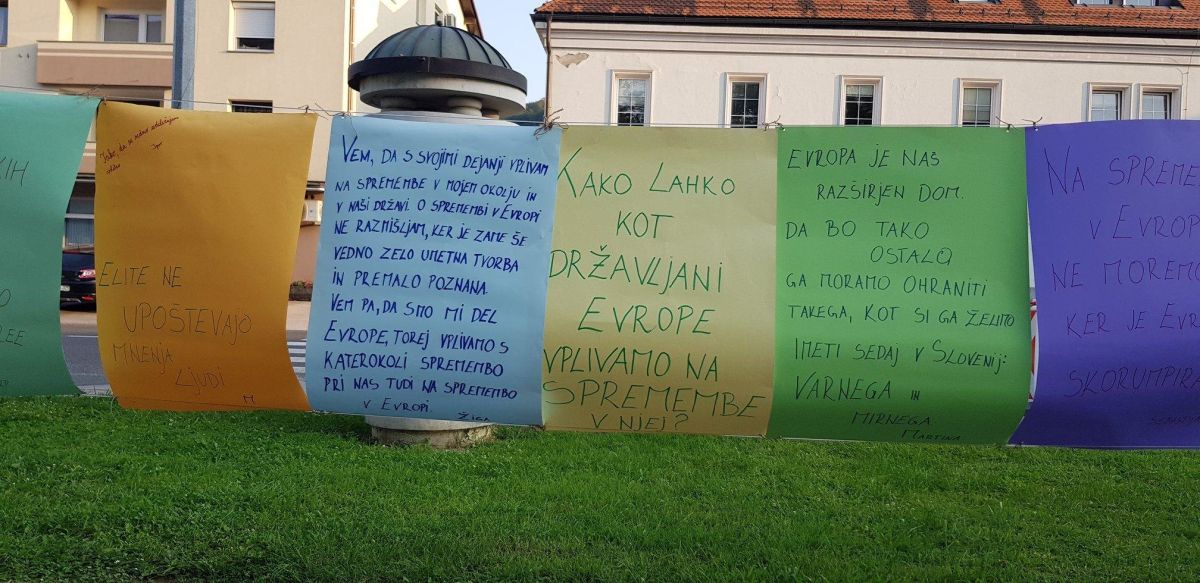 KIH
O
REE
Tako, da se mane udeležujem
Igor
ELITE NE
UPOŠTEVAJO
MNENJA
LJUDI
M
VEM, DA S SVOJIMI DEJANJI VPLIVAM
NA SPREMEMBE V MOJEM OKOLJU IN
V NAŠI DRŽAVI. O SPREMEMBI V EVROPI
NE RAZMIŠLJAM, KER JE ZAME ŠE
VEDNO ZELO UMETNA TVORBA
IN PREMALO POZNANA.
VEM PA, DA SMO MI DEL
EVROPE, TOREJ VPLIVAMO S
KATEROKOLI SPREMEMBO
PRI NAS TUDI NA SPREMEMBO
V EVROPI.
ŽIGA
KAKO LAHKO
KOT
DRŽAVLJANI
EVROPE
VPLIVAMO NA
SPREMEMBE
V NJEJ?
EVROPA JE NAŠ
RAZŠIRJEN DOM.
DA BO TAKO
OSTALO
GA MORAMO OHRANITI
TAKEGA, KOT SI GA ŽELIMO
IMETI SEDAJ V SLOVENIJI:
VARNEGA IN
MIRNEGA
MARTINA
NA SPREME
V EVROP
NE MOREMO
KER JE EVR
SKORUMPIR